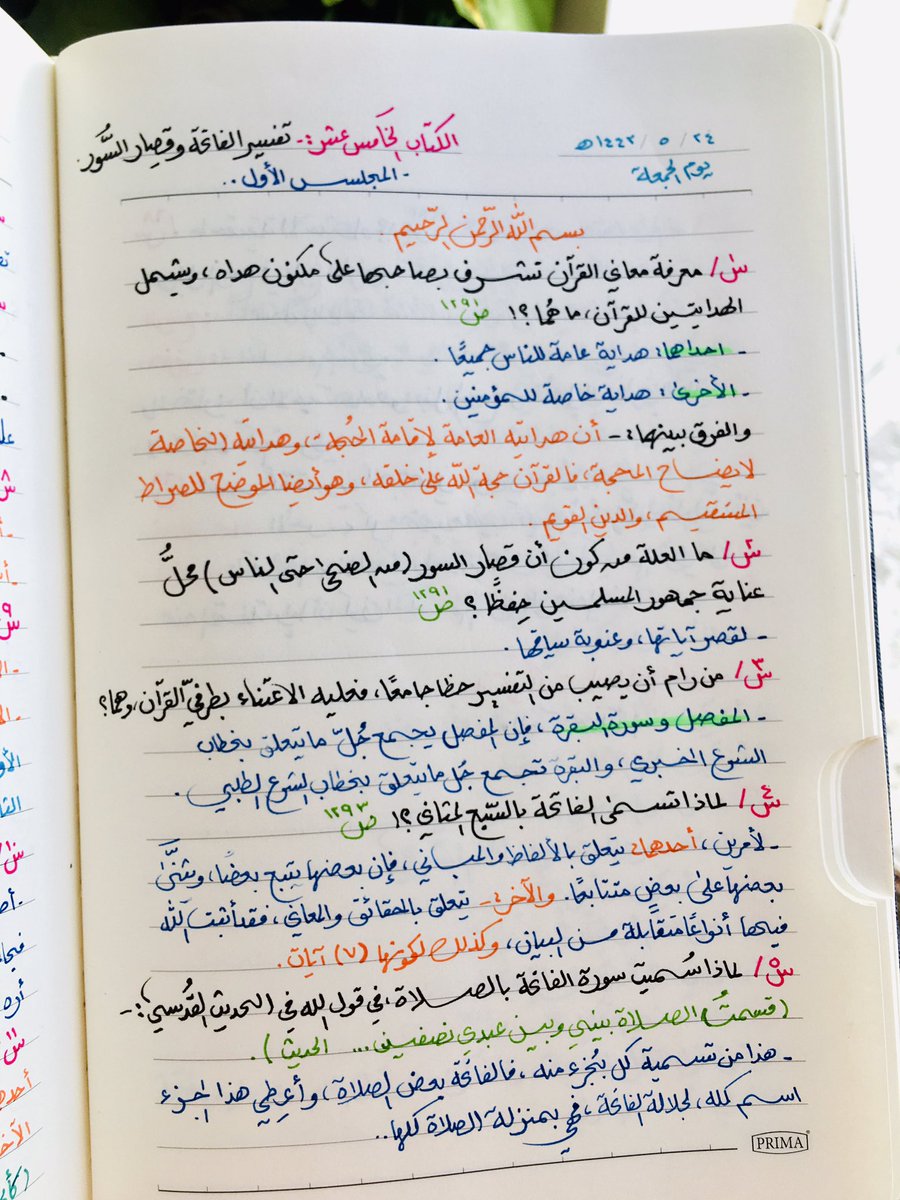 ٢٤ / ٥ / ١٤٤٣هـ
الكتاب الخامس عشر:- تفسير الفاتحة وقصار السُّور.
يوم الجمعة
- المجلس الأول ..
بسم الله الرّحمن الرّحيم
س١/ معرفة معاني القرآن تشرف بصاحبها على مكنون هداه، ويشمل
الهدايتين للقرآن، ما هُما؟! ص١٢٩١
- احداها: هداية عامة للناس جميعًا .
- الأخرى: هداية خاصة للمؤمنين .
والفرق بينها:- أن هدايته العامة لإقامة الحُجة، وهدايته الخاصة
لايضاح المحجة، فالقرآن حجة الله على خلقه، وهو أيضا الموضح للصراط
المستقيم، والدين القويم .
س٢/ ما العلة من كون أن قصار السور (من الضحى احتى الناس) محلُّ
عناية جمهور المسلمين حِفظًا؟ ص١٢٩١
- لقصر آياتها، وعذوبة سياقها .
س٣/ من رام أن يصيب من التفسير حظا جامعًا، فعليه الاعتناء بطرفيّ القرآن، وهما؟
- المفصل وسورة البقرة، فإن المفصل يجمع جُلّ ما يتعلق بخطاب
الشرع الخبري، والبقرة تجمع جُل ما يتعلق بخطاب الشرع الطلبي .
س٤/ لماذا تسمى الفاتحة بالسّبع المثاني؟! ص١٢٩٣
- لأمرين، أحدهما: يتعلق بالألفاظ والمباني، فإن بعضها يتبع بعضًا، ويثنّى
بعضها على بعض متتابعًا. والآخر:- يتعلق بالحقائق والمعاني، فقد أثبت الله
فيها أنواعًا متقابلة من البيان، وكذلك لكونها (٧) آيات .
س٥/ لماذا سُميت سورة الفاتحة بالصلاة، في قول الله في الحديث القُدسي:-
(قسمتُ الصلاة بيني وبين عبدي نصفين ... الحديث) .
- هذا من تسمية كل بجُزء منه، فالفاتحة بعض الصلاة، وأُعطي هذا الجزء
اسم كله، لجلالة الفاتحة، فهي بمنزلة الصلاة كلها ..
PRIMA